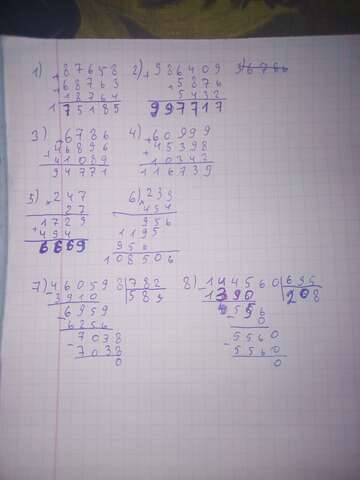 1) +87658 2) +986409 96786
+68763 +5876
18764 5432
175185 997717
3) +6786 4) +60999
+46896 +45398
41089 10342
94771 116739
5) ×247 6) ×239
27 454
1729 956
+494 1195
6669 956
108506
7) -460598 | 782 8) -144560 | 695
3910 589 1390 208
-6959 -556
6256 0
-7038 -5560
7038 5560
0 0